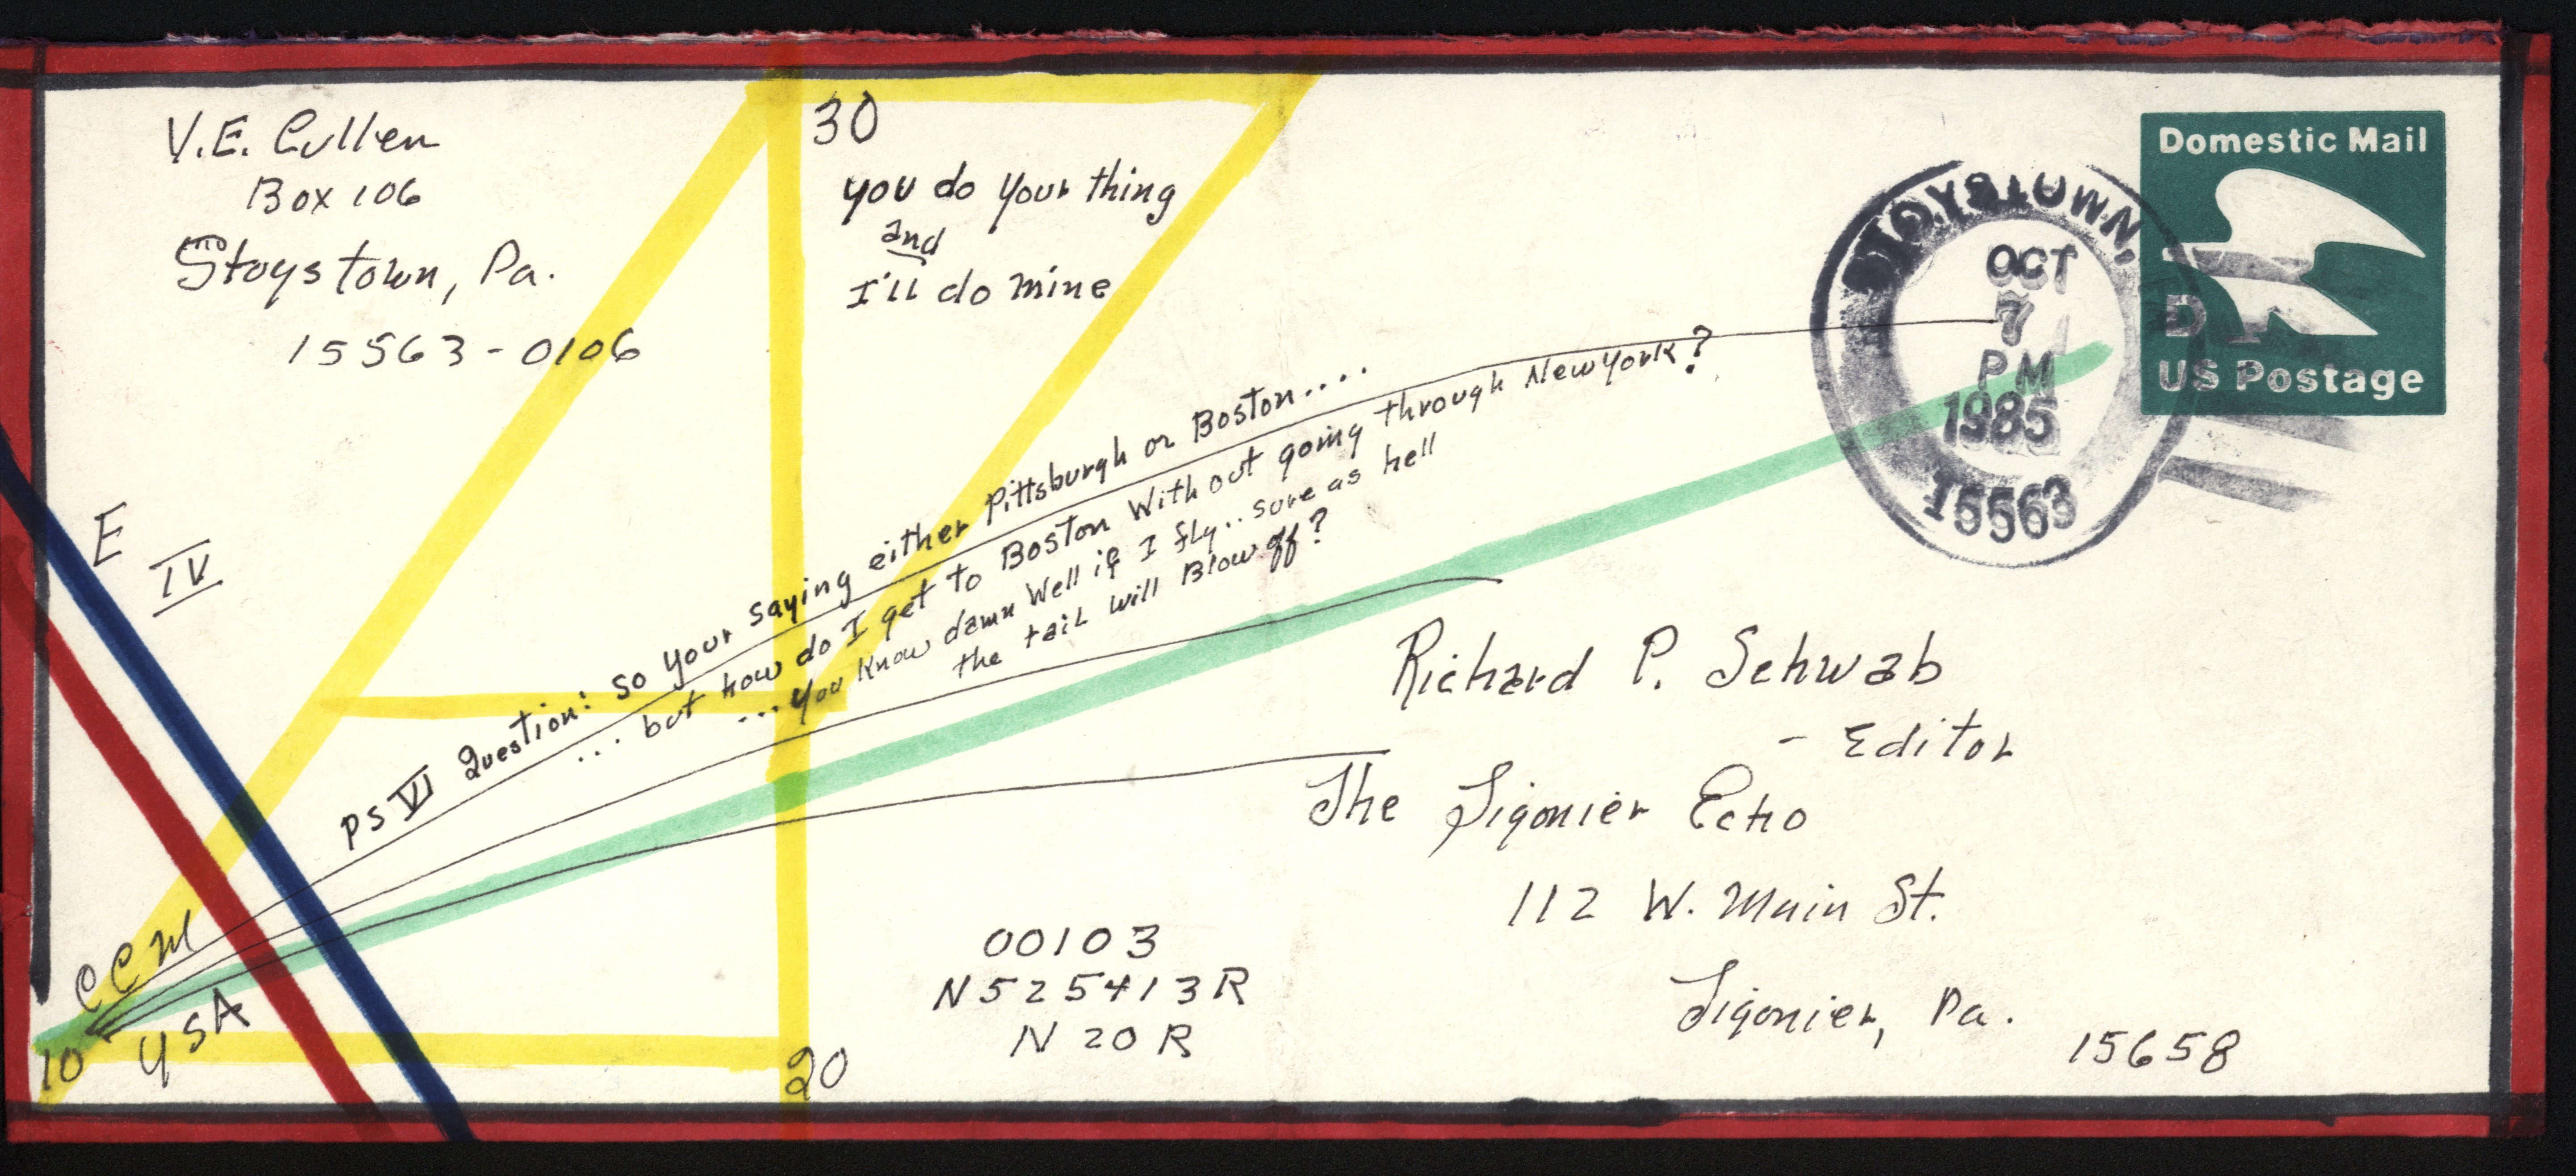 V.E. Cullen
Box 106
Stoystown, Pa.
15563-0106
30
you do your thing
and
I'll do mine
Domestic Mail
D
US Postage
STOYSTOWN,
OCT
7
PM
1985
15563
E
IV
PS VI Question: so your saying either Pittsburgh or Boston....
... but how do I get to Boston without going through New York?
...you know damn well if I fly.. sure as hell
the tail will Blow off?
Richard P. Schwab
- Editor
The Ligonier Echo
112 W. Main St.
Ligonier, Pa.
15658
00103
N525413R
N20R
CCM
USA
10
20